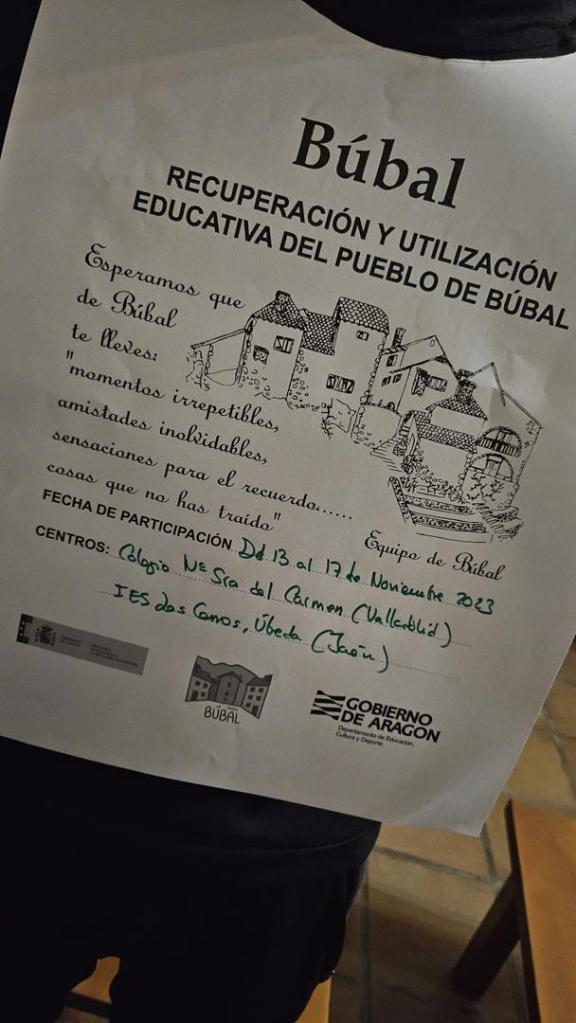 Búbal
RECUPERACIÓN Y UTILIZACIÓN
EDUCATIVA DEL PUEBLO DE BÚBAL
Esperamos que
de Búbal
te lleves:
"momentos irrepetibles,
amistades inolvidables,
sensaciones para el recuerdo......
cosas que no has traído"
Equipo de Búbal
FECHA DE PARTICIPACIÓN Del 13 al 17 de Noviembre 2023
CENTROS: Colegio Nª Sra del Carmen (Valladolid)
IES Los Cerros, Úbeda (Jaén)
BÚBAL
GOBIERNO
DE ARAGON
Departamento de Educación,
Cultura y Deporte